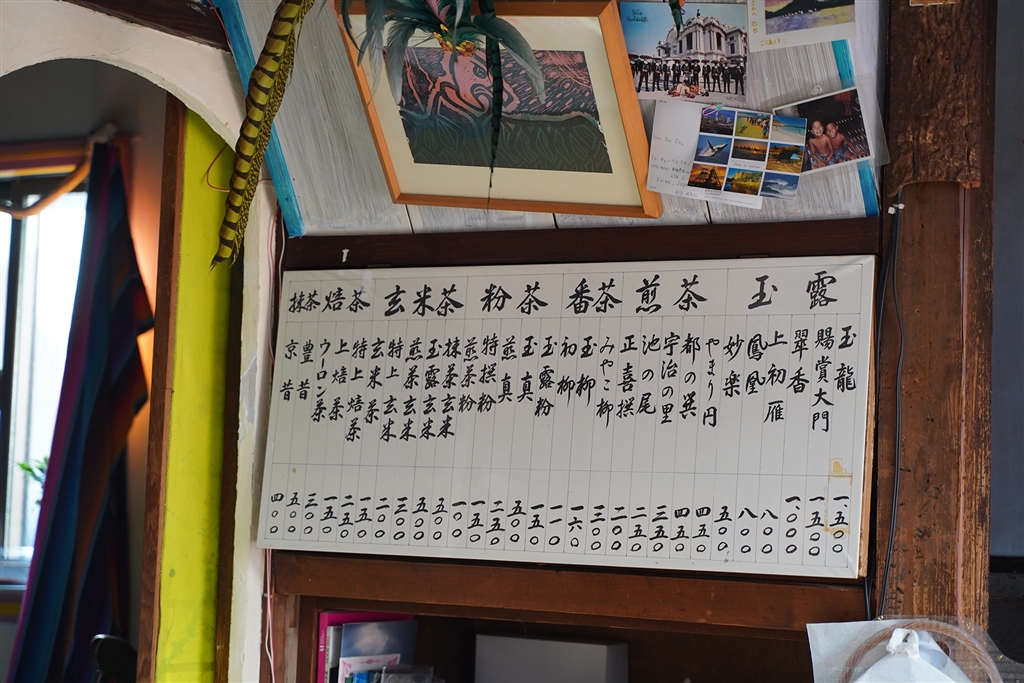 玉露
煎茶
番茶
粉茶
玄米茶
焙茶
抹茶
玉龍 一、五〇〇
賜賞大門 一五〇〇
翠香 一、〇〇〇
上初雁 八〇〇
鳳凰 八〇〇
妙楽 五〇〇
やまり円 四五〇
都の巽 四五〇
宇治の里 三五〇
池の尾 二五〇
正喜撰 二〇〇
みやこ柳 三〇〇
玉柳 一六〇
初柳 一一〇
玉露粉 一五〇
玉真 五〇〇
煎真 二五〇
特撰粉 一五〇
煎茶粉 一〇〇
抹茶玄米 五〇〇
玉露玄米 五〇〇
煎茶玄米 三〇〇
特上玄米 二〇〇
玄米茶 一五〇
特上焙茶 二五〇
上焙茶 一五〇
ウーロン茶 三〇〇
豊昔 五〇〇
京昔 四〇〇